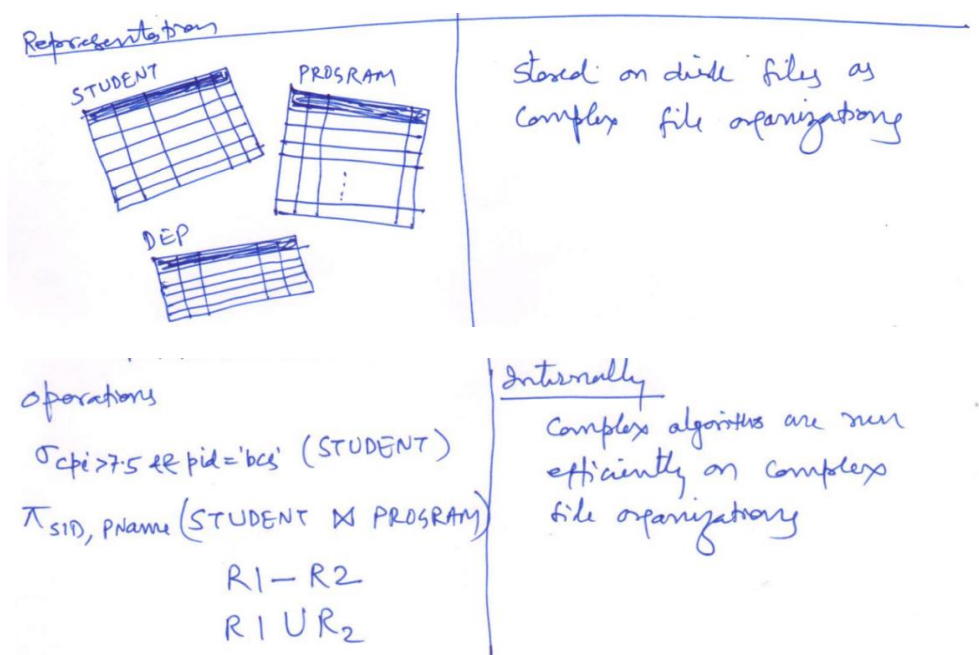 Representation
STUDENT
PROGRAM
DEP
Stored on disk files as
Complex file organizations
operations
σcpi>7.5 && pid='bcs' (STUDENT)
πSID, PName (STUDENT ⋈ PROGRAM)
R1 − R2
R1 ∪ R2
Internally
Complex algorithms are run
efficiently on complex
file organizations